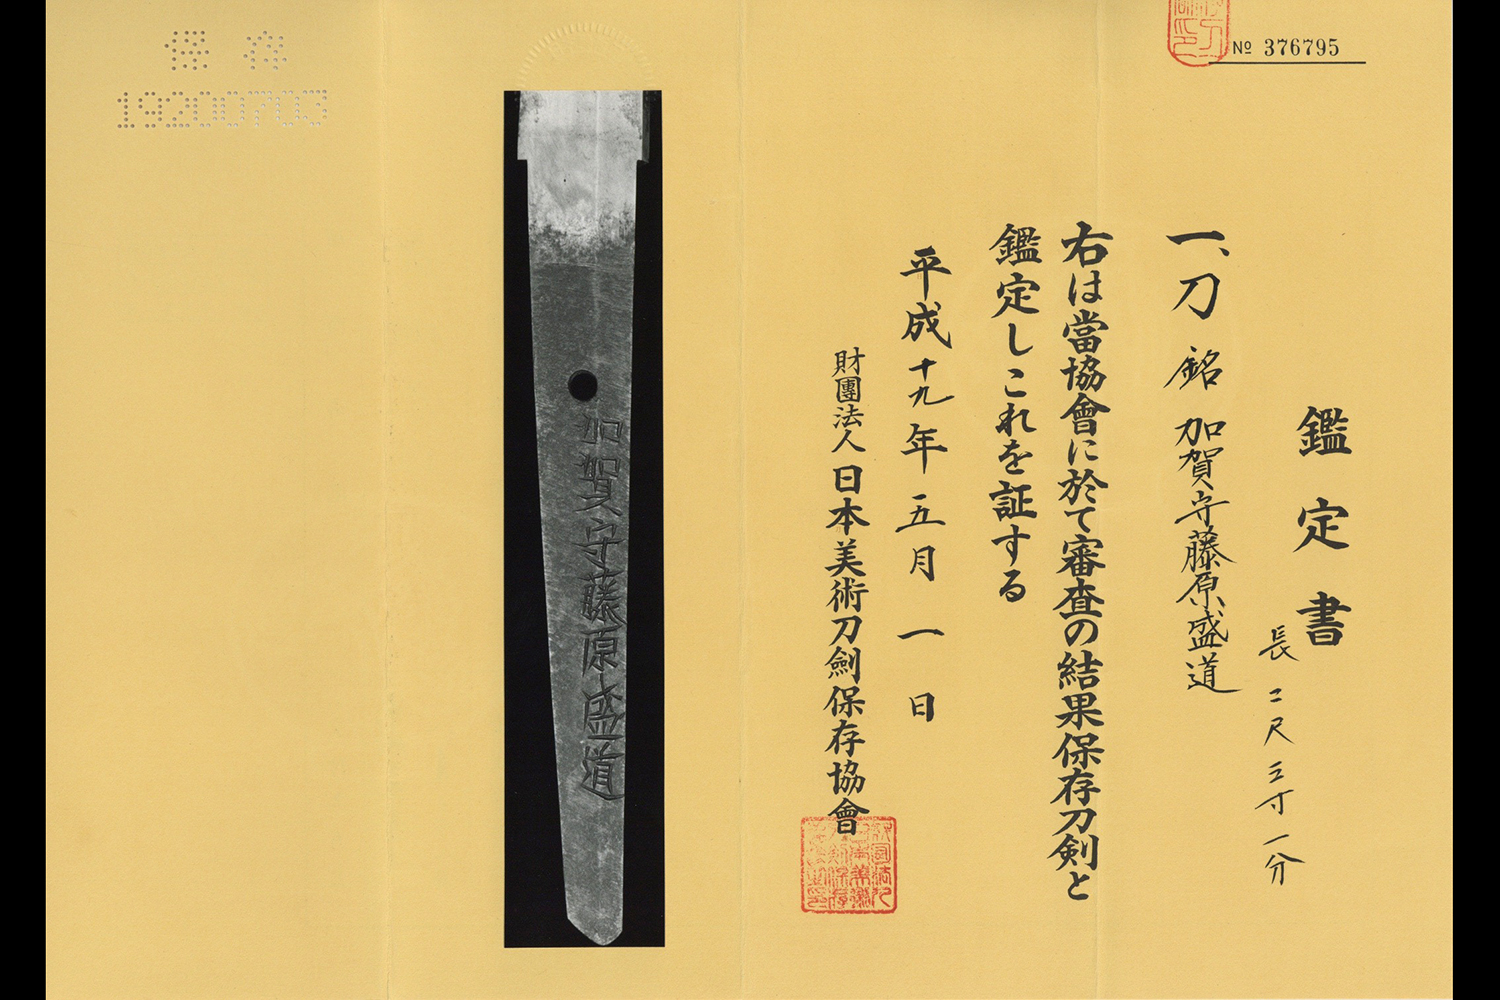 № 376795
鑑定書
長二尺三寸一分
一、刀 銘 加賀守藤原盛道
右は當協會に於て審査の結果保存刀剣と
鑑定しこれを証する
平成十九年五月一日
財團法人日本美術刀劍保存協會
加賀守藤原盛道
保存
19200703